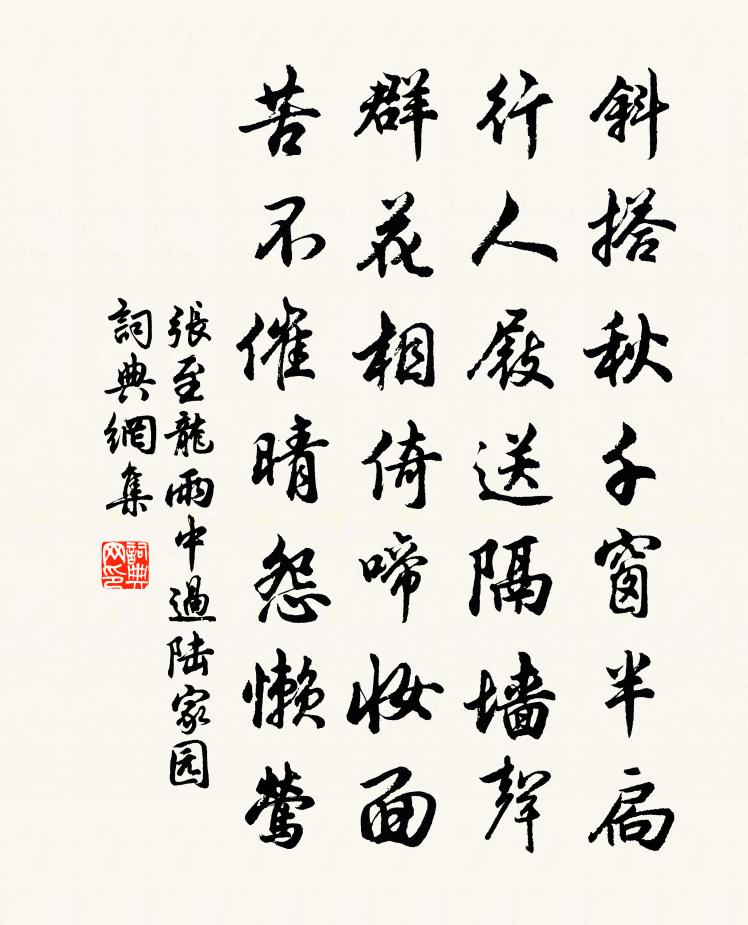 斜搭秋千窗半扃
行人屐送隔墙聲
群花相倚啼妆面
苦不催晴怨懒鶯
張至龍雨中過陆家园
詞典網集
詞典网印